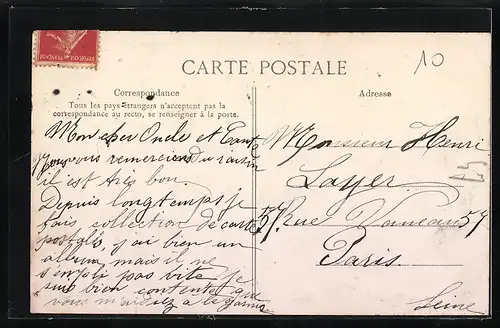 REPUBLIQUE FRANÇAISE
10
CARTE POSTALE
Correspondance
Tous les pays étrangers n'acceptent pas la
correspondance au recto, se renseigner à la poste.
Mon cher Oncle et Tante
Nous vous remercions du raisin
il est très bon.
Depuis longtemps je
fais collection de cartes
postales, j'ai bien un
album mais il ne
s'empli pas vite je
suis bien contente que
vous m'aidiez à le garnir
Adresse
Monsieur Henri
Layer
57 Rue Vaneau 57
Paris
Seine